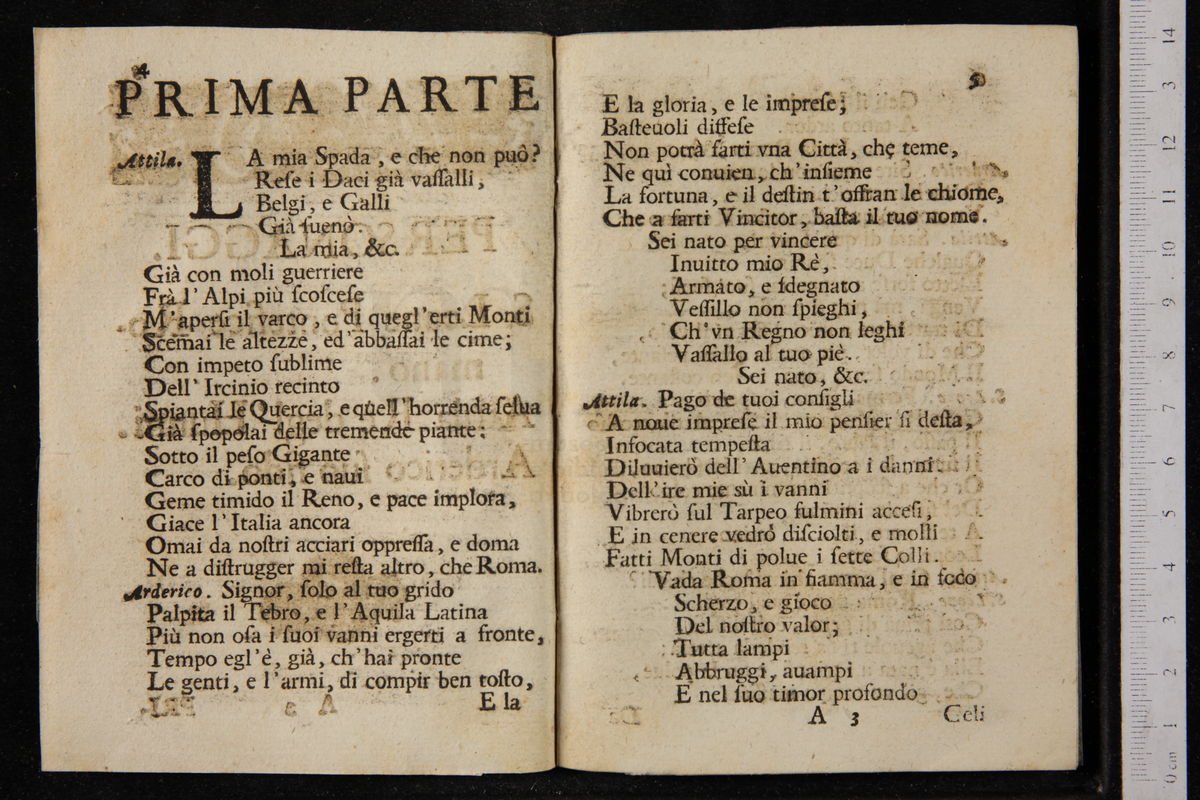 4
PRIMA PARTE
Attila. LA mia Spada, e che non può?
Reſe i Daci già vaſſalli,
Belgi, e Galli
Già ſuenò.
La mia, &c.
Già con moli guerriere
Frà l'Alpi più ſcoſceſe
M'aperſi il varco, e di quegl'erti Monti
Scemai le altezze, ed'abbaſſai le cime;
Con impeto ſublime
Dell'Ircinio recinto
Spiantai le Quercia, e quell'horrenda ſelua
Già ſpopolai delle tremende piante;
Sotto il peſo Gigante
Carco di ponti, e naui
Geme timido il Reno, e pace implora,
Giace l'Italia ancora
Omai da noſtri acciari oppreſſa, e doma
Ne a diſtrugger mi reſta altro, che Roma.
Arderico. Signor, ſolo al tuo grido
Palpita il Tebro, e l'Aquila Latina
Più non oſa i ſuoi vanni ergerti a fronte,
Tempo egl'è, già, ch'hai pronte
Le genti, e l'armi, di compir ben toſto,
E la
5
E la gloria, e le impreſe;
Baſteuoli diffeſe
Non potrà farti vna Città, che teme,
Ne quì conuien, ch'inſieme
La fortuna, e il deſtin t'offran le chiome,
Che a farti Vincitor, baſta il tuo nome.
Sei nato per vincere
Inuitto mio Rè,
Armato, e ſdegnato
Veſſillo non ſpieghi,
Ch'vn Regno non leghi
Vaſſallo al tuo piè.
Sei nato, &c.
Attila. Pago de tuoi conſigli
A noue impreſe il mio penſier ſi deſta,
Infocata tempeſta
Diluuierò dell'Auentino a i danni
Dell'ire mie sù i vanni
Vibrerò ſul Tarpeo fulmini acceſi,
E in cenere vedrò diſciolti, e molli
Fatti Monti di polue i ſette Colli.
Vada Roma in fiamma, e in foco
Scherzo, e gioco
Del noſtro valor;
Tutta lampi
Abbruggi, auampi
E nel ſuo timor profondo
A 3 Celi